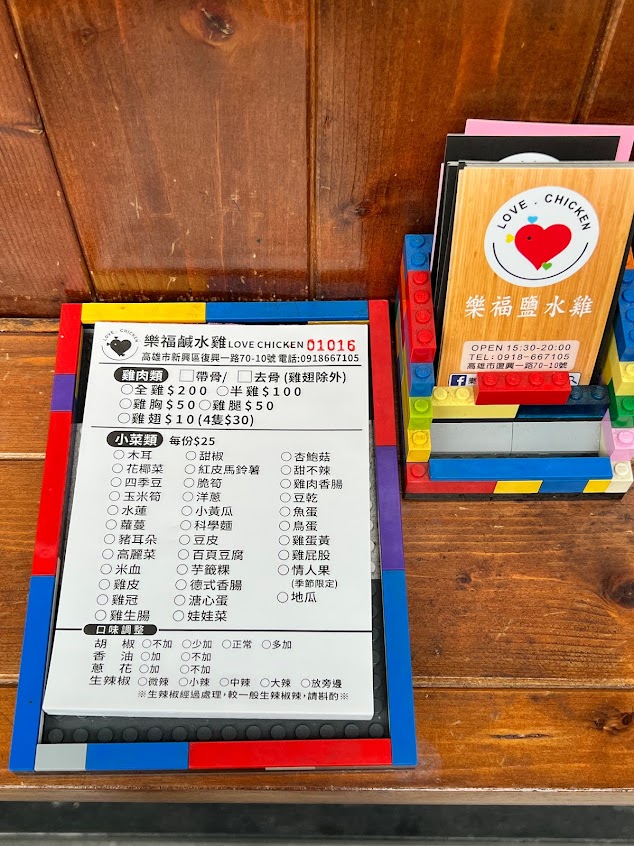 LOVE.CHICKEN
樂福鹹水雞LOVE CHICKEN 01016
高雄市新興區復興一路70-10號 電話:0918667105
雞肉類 □帶骨/ □去骨(雞翅除外)
○全雞$200 ○半雞$100
○雞胸$50○雞腿$50
○雞翅$10(4隻$30)
小菜類 每份$25
○木耳 ○甜椒 ○杏鮑菇
○花椰菜 ○紅皮馬鈴薯 ○甜不辣
○四季豆 ○脆筍 ○雞肉香腸
○玉米筍 ○洋蔥 ○豆乾
○水蓮 ○小黃瓜 ○魚蛋
○蘿蔓 ○科學麵 ○鳥蛋
○豬耳朵 ○豆皮 ○雞蛋黃
○高麗菜 ○百頁豆腐 ○雞屁股
○米血 ○芋籤粿 ○情人果
(季節限定)
○雞皮 ○德式香腸 ○地瓜
○雞冠 ○溏心蛋
○雞生腸 ○娃娃菜
口味調整
胡椒 ○不加 ○少加 ○正常 ○多加
香油 ○加 ○不加
蔥花 ○加 ○不加
生辣椒 ○微辣 ○小辣 ○中辣 ○大辣 ○放旁邊
※生辣椒經過處理,較一般生辣椒辣,請斟酌※
LOVE.CHICKEN
樂福鹽水雞
OPEN 15:30-20:00
TEL:0918-667105
高雄市復興一路70-10號